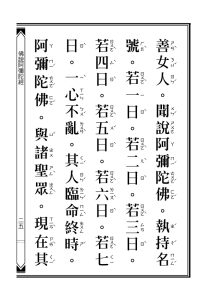 善女人。聞說阿彌陀佛。執持名
號。若一日。若二日。若三日。
若四日。若五日。若六日。若七
日。一心不亂。其人臨命終時。
阿彌陀佛。與諸聖眾。現在其
佛說阿彌陀經
二五